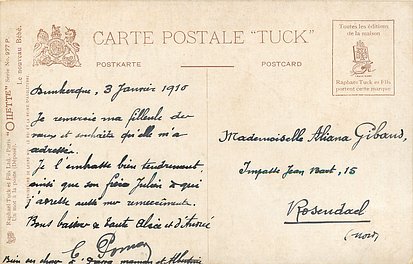 CARTE POSTALE "TUCK"
POSTKARTE
POSTCARD
Toutes les éditions
de la maison
Raphael Tuck et Fils
portent cette marque
Raphael Tuck et Fils, Ltd., Paris.
"OILETTE" Série No. 977 P.
Le nouveau Bébé.
Dunkerque, 3 Janvier 1910
Je remercie ma filleule des
vœux et souhaits qu'elle m'a
adressés.
Je l'embrasse bien tendrement,
ainsi que son frère Julien à qui
j'adresse aussi mes remerciements.
Bons baisers de tante Alice et d'André
Mademoiselle Gibaud,
Impasse Jean Bart, 15
Rosendael
(Nord)